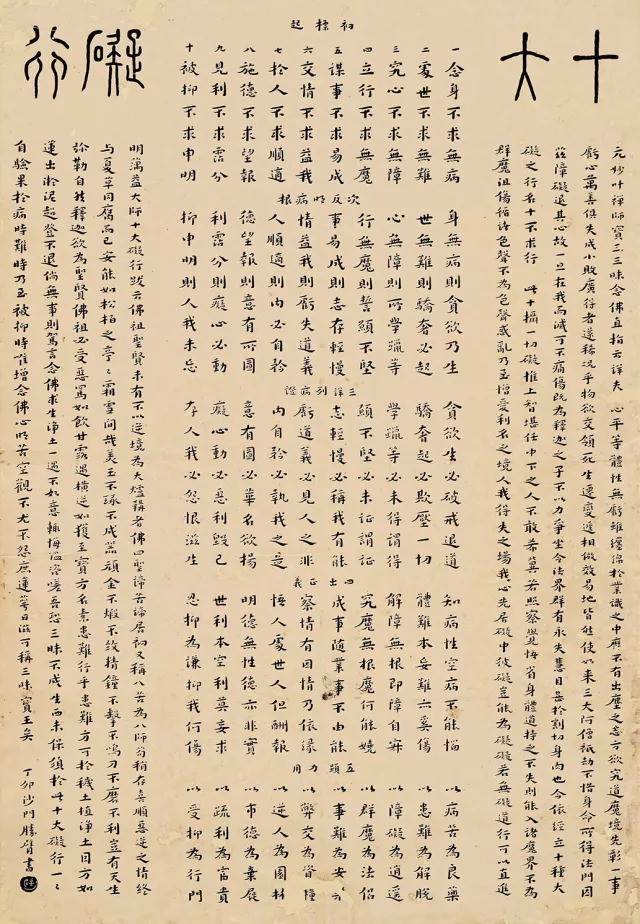 十大
礙行
元妙叶禪師寶王三昧念佛直指云詳夫 心平等體性無虧雖纏緜於業識之中靡不有出塵之志方欲究道魔境先彰一事
虧心萬善俱失成小敗廣得者還稀況乎物欲交傾死生遷變遞相倣效易地皆然使如來三大阿僧祇劫不惜身命所得法門因
茲障礙退其心故一旦在我而滅可不痛傷既為釋迦之子不以力爭坐令法界群有永失慧目甚於割切身肉也今依經立十種大
礙之行名十不求行 此十攝一切礙惟上智堪任中下之人不敢希冀若照察覺悟省身體道持之不失則能入諸魔界不為
群魔沮傷循諸色聲不為色聲惑亂乃至憎愛利名之境人我得失之場我心先居礙中彼礙豈能為礙礙若無礙道行可以直進
初標起
一念身不求無病
二處世不求無難
三究心不求無障
四立行不求無魔
五謀事不求易成
六交情不求益我
七於人不求順適
八施德不求望報
九見利不求霑分
十被抑不求申明
次反明病根
身無病則貪欲乃生
世無難則驕奢必起
心無障則所學躐等
行無魔則誓願不堅
事易成則志存輕慢
情益我則虧失道義
人順適則內必自矜
德望報則意有所圖
利霑分則癡心必動
抑申明則人我未忘
三詳列病證
貪欲生必破戒退道
驕奢起必欺壓一切
學躐等必未得謂得
願不堅必未証謂証
志輕慢必稱我有能
虧道義必見人之非
內自矜必執我之是
意有圖必華名欲揚
癡心動必惡利毀己
存人我必怨恨滋生
四出正義
知病性空病不能惱
體難本妄難亦奚傷
解障無根即障自寂
究魔無根魔何能嬈
成事隨業事不由能
察情有因情乃依緣
悟人處世人但酬報
明德無性德亦非實
世利本空利莫妄求
忍抑為謙抑我何傷
五顯力用
以病苦為良藥
以患難為解脫
以障礙為逍遙
以群魔為法侶
以事難為安樂
以弊交為資糧
以逆人為園林
以市德為棄屣
以疏利為富貴
以受抑為行門
明蕅益大師十大礙行跋云佛祖聖賢未有不以逆境為大爐鞴者佛四聖諦苦諦居初又稱八苦為八師苟稍存喜順惡逆之情終
與夏草同腐而已安能如松柏之亭亭霜雪間哉美玉不琢不成器頑金不煅不致精鐘不擊不鳴刀不磨不利豈有天生
彌勒自然釋迦欲為聖賢佛祖必受惡罵如飲甘露遇橫逆如獲至寶方名素患難行乎患難方可於穢土植淨土因方如
蓮出淤泥超登不退倘無事則駕言念佛求生淨土一遇不如意輒悔溫恣嗟吾恐三昧不成生西未保須於此十大礙行一一
自驗果於病時難時乃至被抑時唯增念佛心明苦空觀不尤不怨庶蓮萼日滋可稱三昧寶王矣
丁卯沙門勝臂書